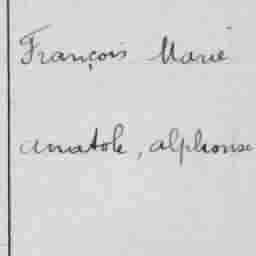 François Marie
anatole, alphonse